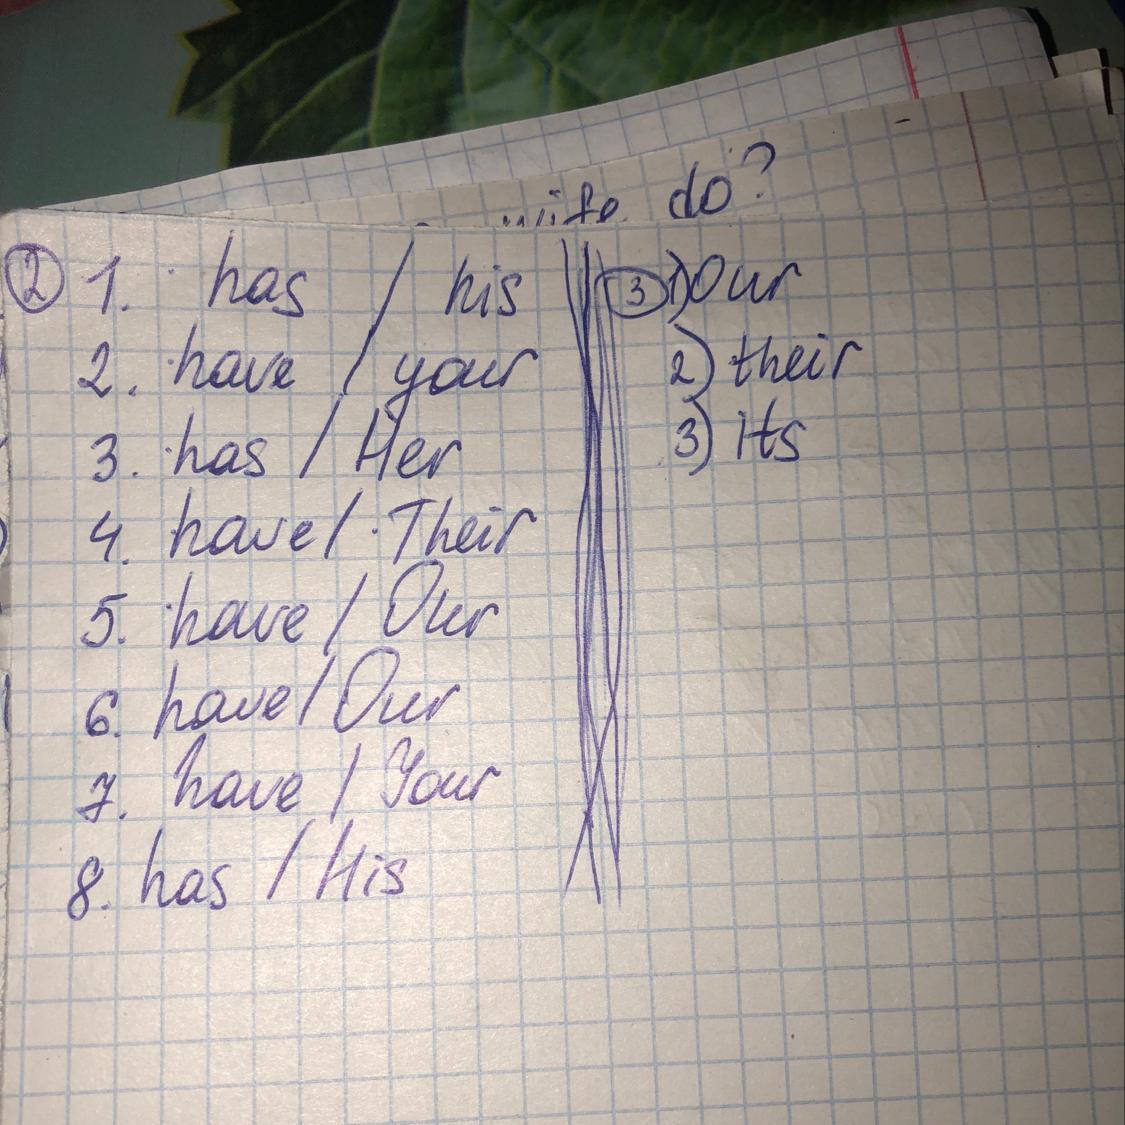 wife do?
② 1. has / his
2. have / your
3. has / Her
4. have / Their
5. have / Our
6. have / Our
7. have / Your
8. has / His
③ 1) Our
2) their
3) its